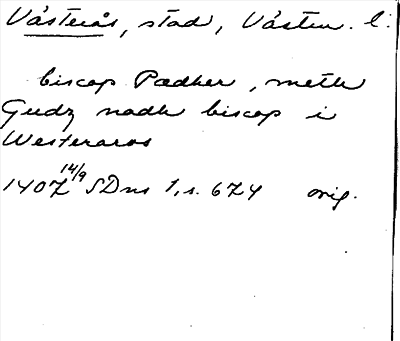 Västerås, stad, Västm. l:
biscop Pædher, meth
Gudz nadh biscop i
Westeraros
1407 14/9 SDns 1, s. 674 orig.